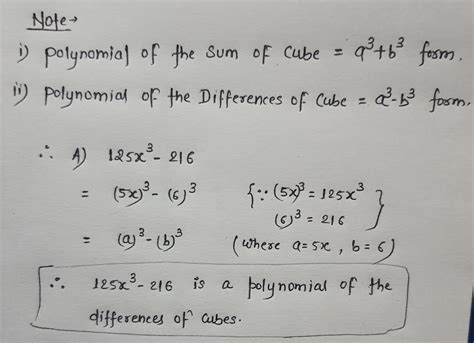 Note →
i) polynomial of the sum of cube = a³+b³ form.
ii) polynomial of the Differences of cube = a³-b³ form.
∴ A) 125x³ - 216
= (5x)³ - (6)³ {∵ (5x)³ = 125x³
(6)³ = 216 }
= (a)³ - (b)³ (where a=5x, b=6)
∴ 125x³ - 216 is a polynomial of the
differences of cubes.